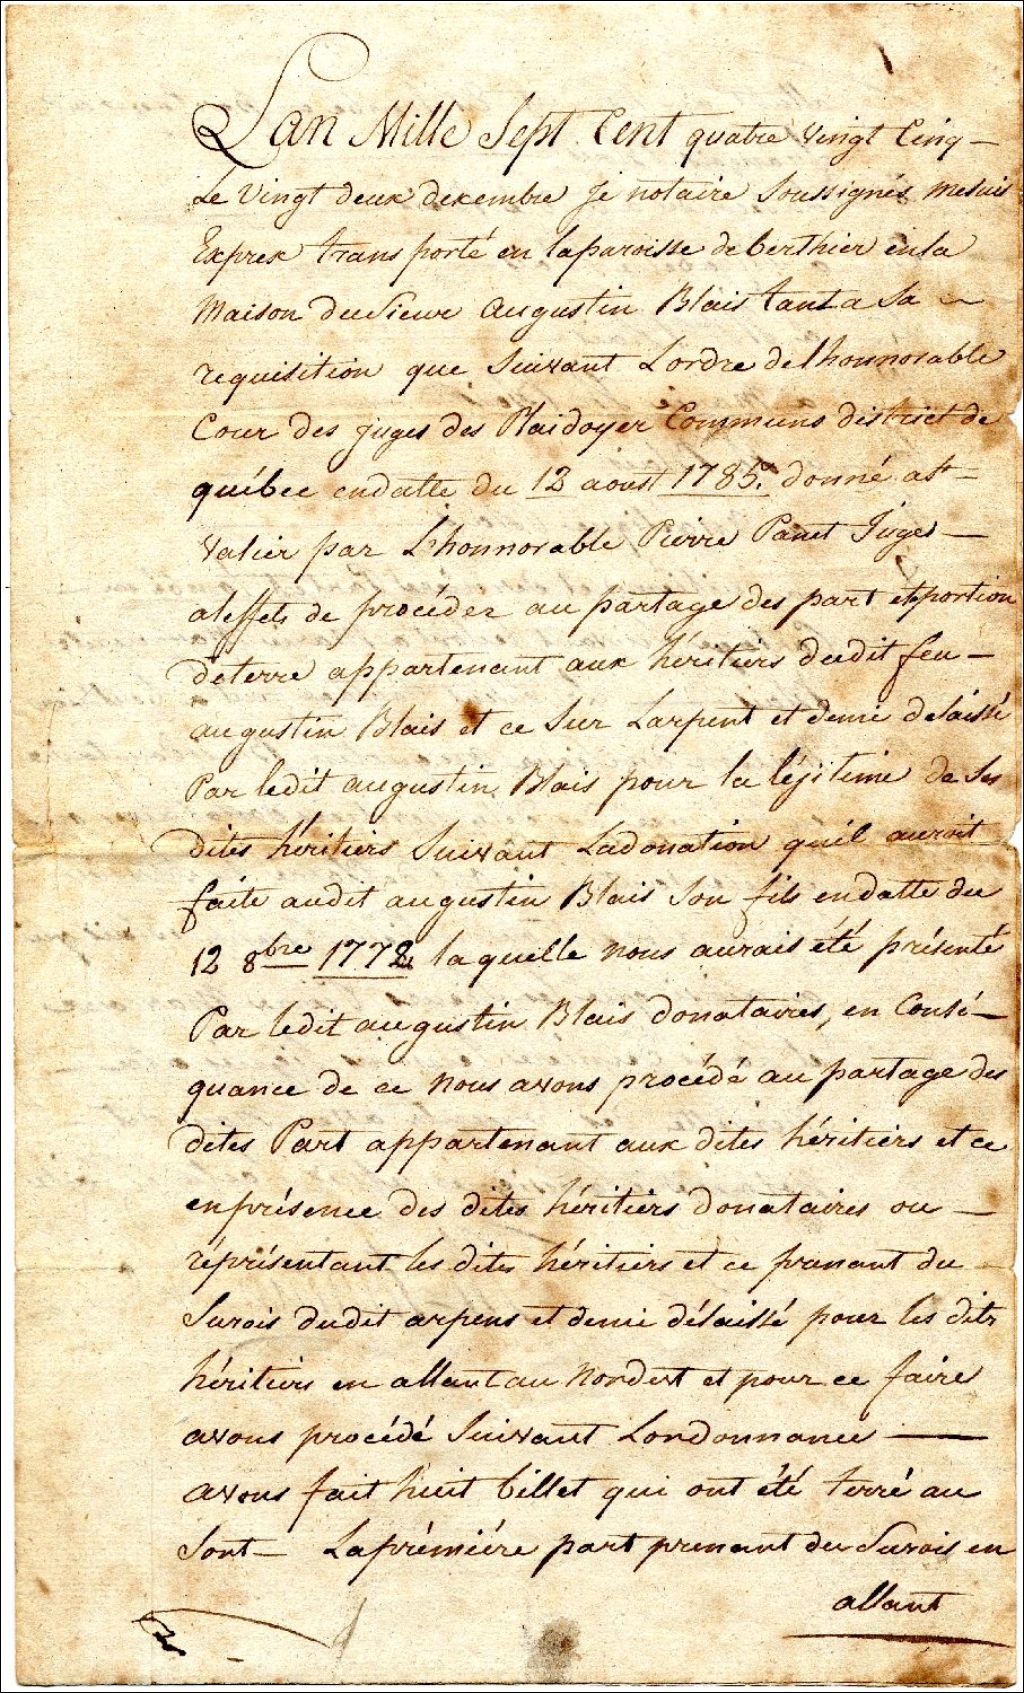 Lan Mille Sept Cent quatre vingt Cinq —
Le Vingt deux dexembre Je notaire Soussignés mesuis
Exprex trans porté en laparoisse de berthier enla
Maison du Sieur Augustin Blais tant a Sa —
requisition que Suivant Lordre delhonnorable
Cour des juges des Plaidoyer Communs district de
québec endatte du 12 aoust 1785. donné a st —
valier par Lhonnorable Pierre Panet Juges —
aleffets de procéder au partage des part et portion
deterre appartenant aux héritiers dudit feu —
augustin Blais et ce Sur Larpent et demi delaissé
Par ledit augustin Blais pour la léjitime de Ses
dites héritiers Suivant Ladonation quil auroit
faite audit augustin Blais Son fils endatte du
12 8bre 1772 laquelle nous aurais été présenté
Par ledit augustin Blais donataires, en Consé —
quance de ce nous avons procédé au partage des
dites Part appartenant aux dites héritiers et ce
enprésence des dites héritiers donataires ou —
réprésentant les dites héritiers et ce prenant du —
Surois dudit arpens et demi délaissé pour les dits
héritiers en allant au Nordest et pour ce faires
avons procédé Suivant Londonnance —
avons fait huit billet qui ont été terré au
Sort — Laprémiére part prenant du Surois en
allant